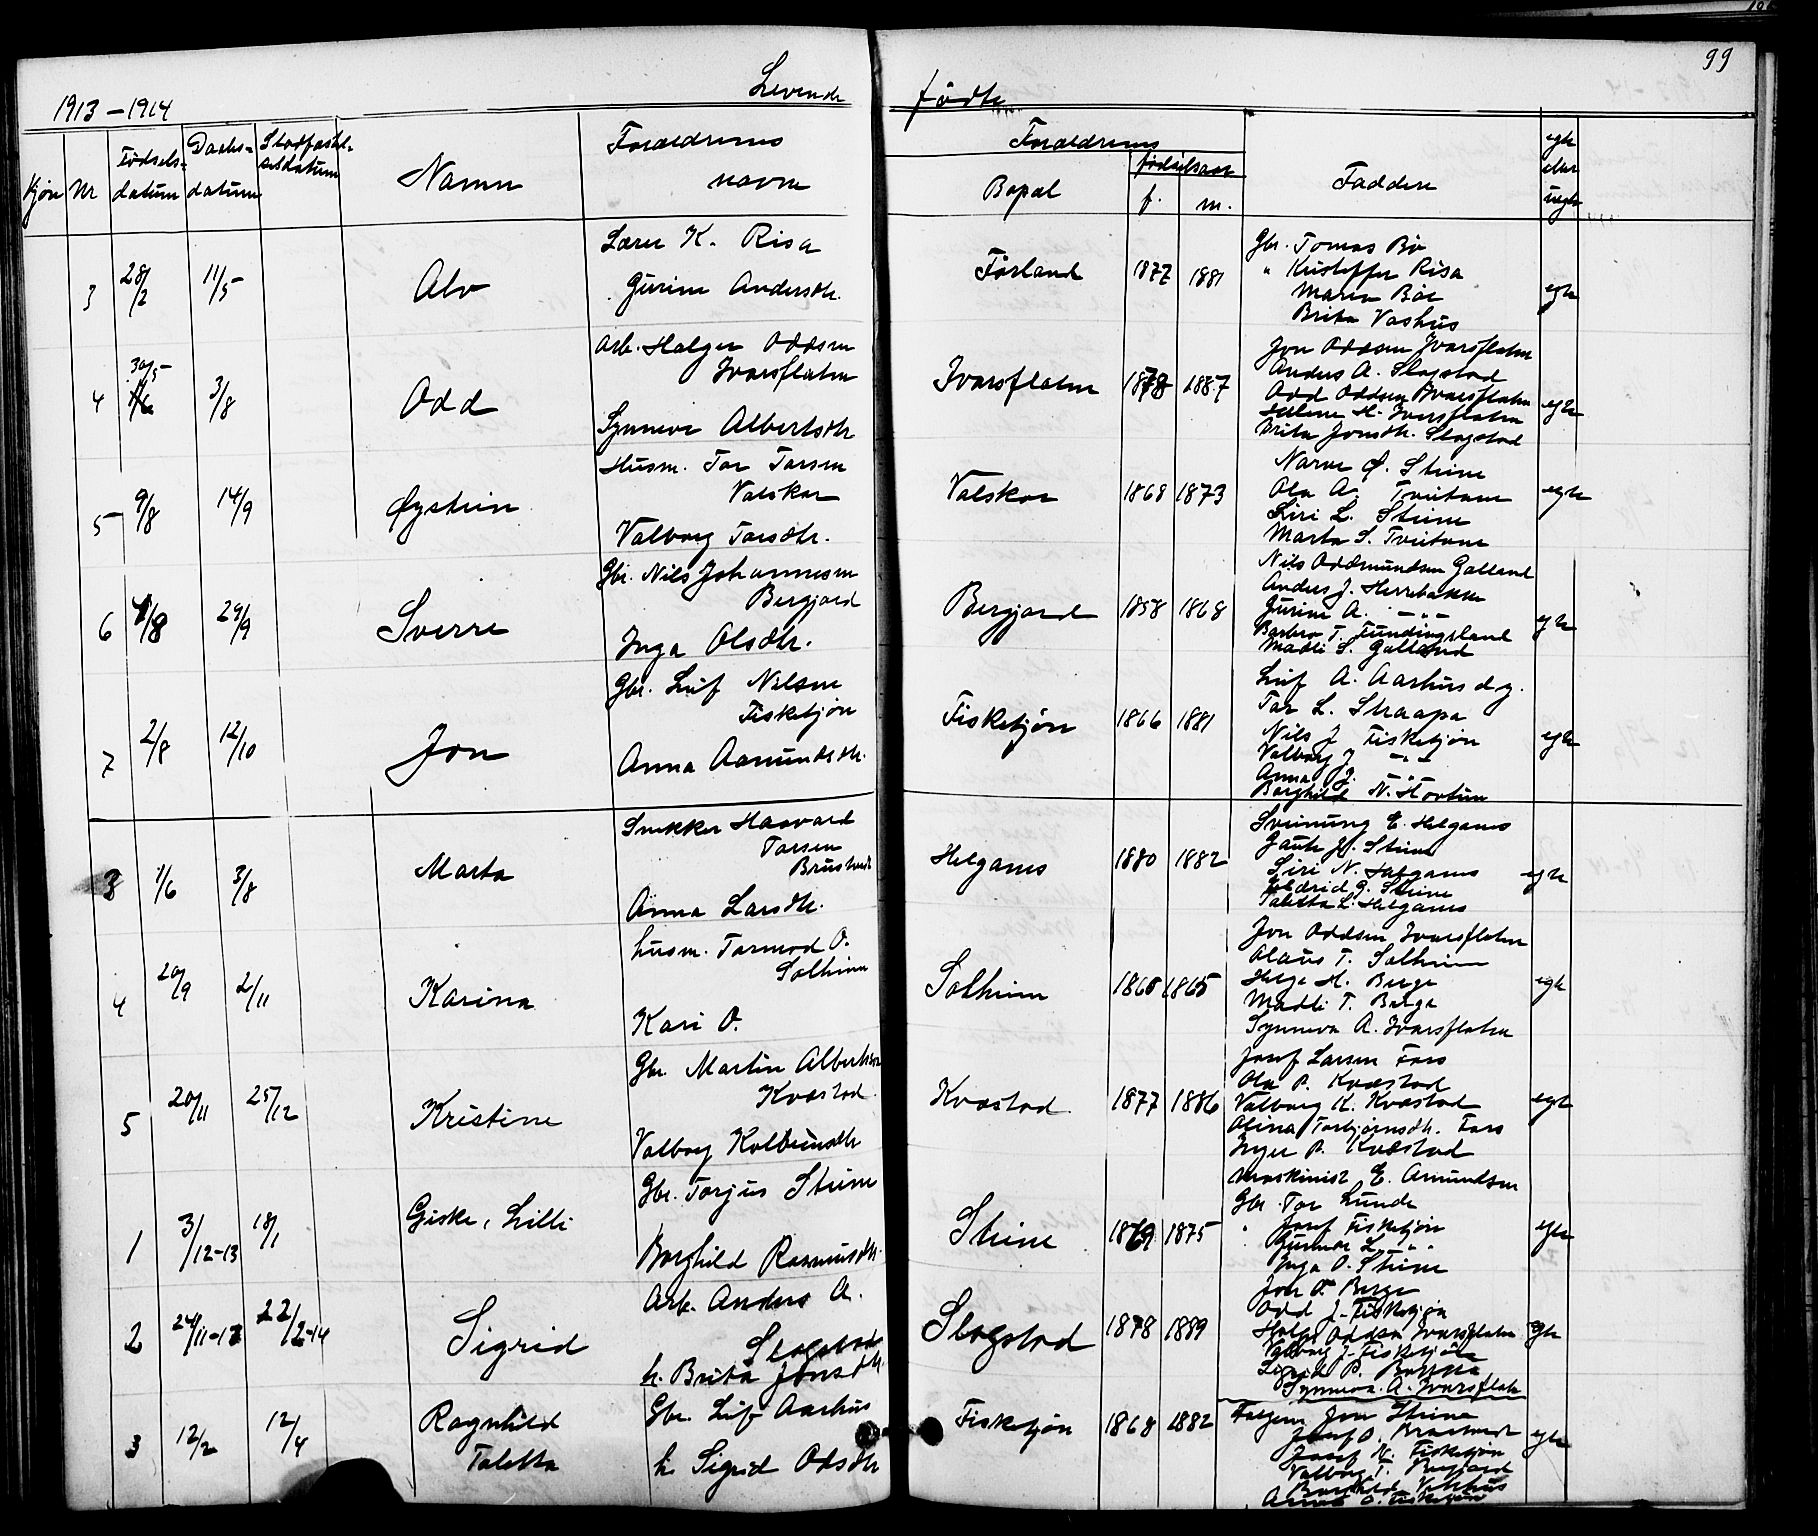 99
1913-1914
Levende fødte
Kjøn Nr Fødselsdatum Daabsdatum Stadfæstelsesdatum Namn Foreldrenes navne Foreldrenes Bopæl fødselsaar f. m. Faddere egte eller uegte
3 28/2 11/5 Alv
Lærer K. Risa
Gurine Andersdtr.
Førland 1877 1881
Gbr. Tomas Bø
" Kristoffer Risa
Maren Bøe
Brita Vashus
egte
4 30/5 3/8 Odd
Arb. Helger Oddsen
Ivarsflaten
Synneva Albertsdtr
Ivarsflaten 1878 1887
Jon Oddsen Ivarsflaten
Anders A. Slagstad
Odd Oddsen Ivarsflaten
Helene H. Ivarsflaten
Brita Jonsdtr. Slagstad
egte
5 9/8 14/9 Øystein
Husm. Tor Torsen
Valskar
Valborg Torsdtr.
Valskar 1868 1873
Narve Ø. Steine
Ola A. Tveitane
Siri L. Steine
Marta S. Tveitane
egte
6 8/8 29/9 Sverre
Gbr. Nils Johannesen
Bergjord
Inga Olsdtr.
Bergjord 1858 1868
Nils Oddmundsen Galland
Anders J. Herrebakken
Gurine A. - " -
Barbro T. Fundingsland
Madli S. Galland
egte
7 2/8 12/10 Jon
Gbr. Leif Nilsen
Fisketjøn
Anna Aamundsdtr.
Fisketjøn 1866 1881
Leif A. Aarhus d.y.
Tor L. Straapa
Nils J Fisketjøn
Valborg J - " -
Anna J. - " -
Borghild N. Hovtun
egte
3 1/6 3/8 Marta
Snekker Haavard
Torsen
Anna Larsdtr.
Helganes 1880 1882
Sveinung E. Helganes
Gaute G. Steine
Siri N. Helganes
G. Steine
Taletta L. Helganes
egte
4 20/9 2/11 Karina
husm. Tormod O.
Solheim
Kari O.
Solheim 1865 1865
Jon Oddsen Ivarsflaten
Olaus T. Solheim
Helge H. Berge
Madli T. Berge
Synneva A. Ivarsflaten
egte
5 20/11 25/12 Kristine
Gbr. Martin Albertsen
Kvæstad
Valborg Kolbeinsdtr
Kvæstad 1877 1886
Josef Larsen Foss
Ola P. Kvæstad
Valborg K. Kvæstad
Olina Torbjørnsdtr. Foss
Inger P. Kvæstad
egte
1 3/12-13 18/1 Giske, Lilli
Gbr. Torjus Steine
Borghild Rasmusdtr.
Steine 1869 1875
Maskinist E. Amundsen
Gbr Tor Lunde
" Josef Fisketjøn
Gunnar L. - " -
Inga O. Steine
egte
2 24/11-13 22/2-14 Sigrid
Arb. Anders A.
Slagstad
h. Brita Jonsdtr.
Slagstad 1878 1889
Jon O. Berge
Odd J. Fisketjøn
Helge Oddsen Ivarsflaten
Valborg J. Fisketjøn
Sigrid P.
Synneva A. Ivarsflaten
egte
3 12/2 12/4 Ragnhild
Taletta
Gbr. Leif Aarhus
h. Sigrid Odsdtr
Fisketjøn 1868 1882
Jon Steine
Josef O.
Josef N. Fisketjøn
Valborg T. Bergjord
Borghild
Anna O. Fisketjøn
egte